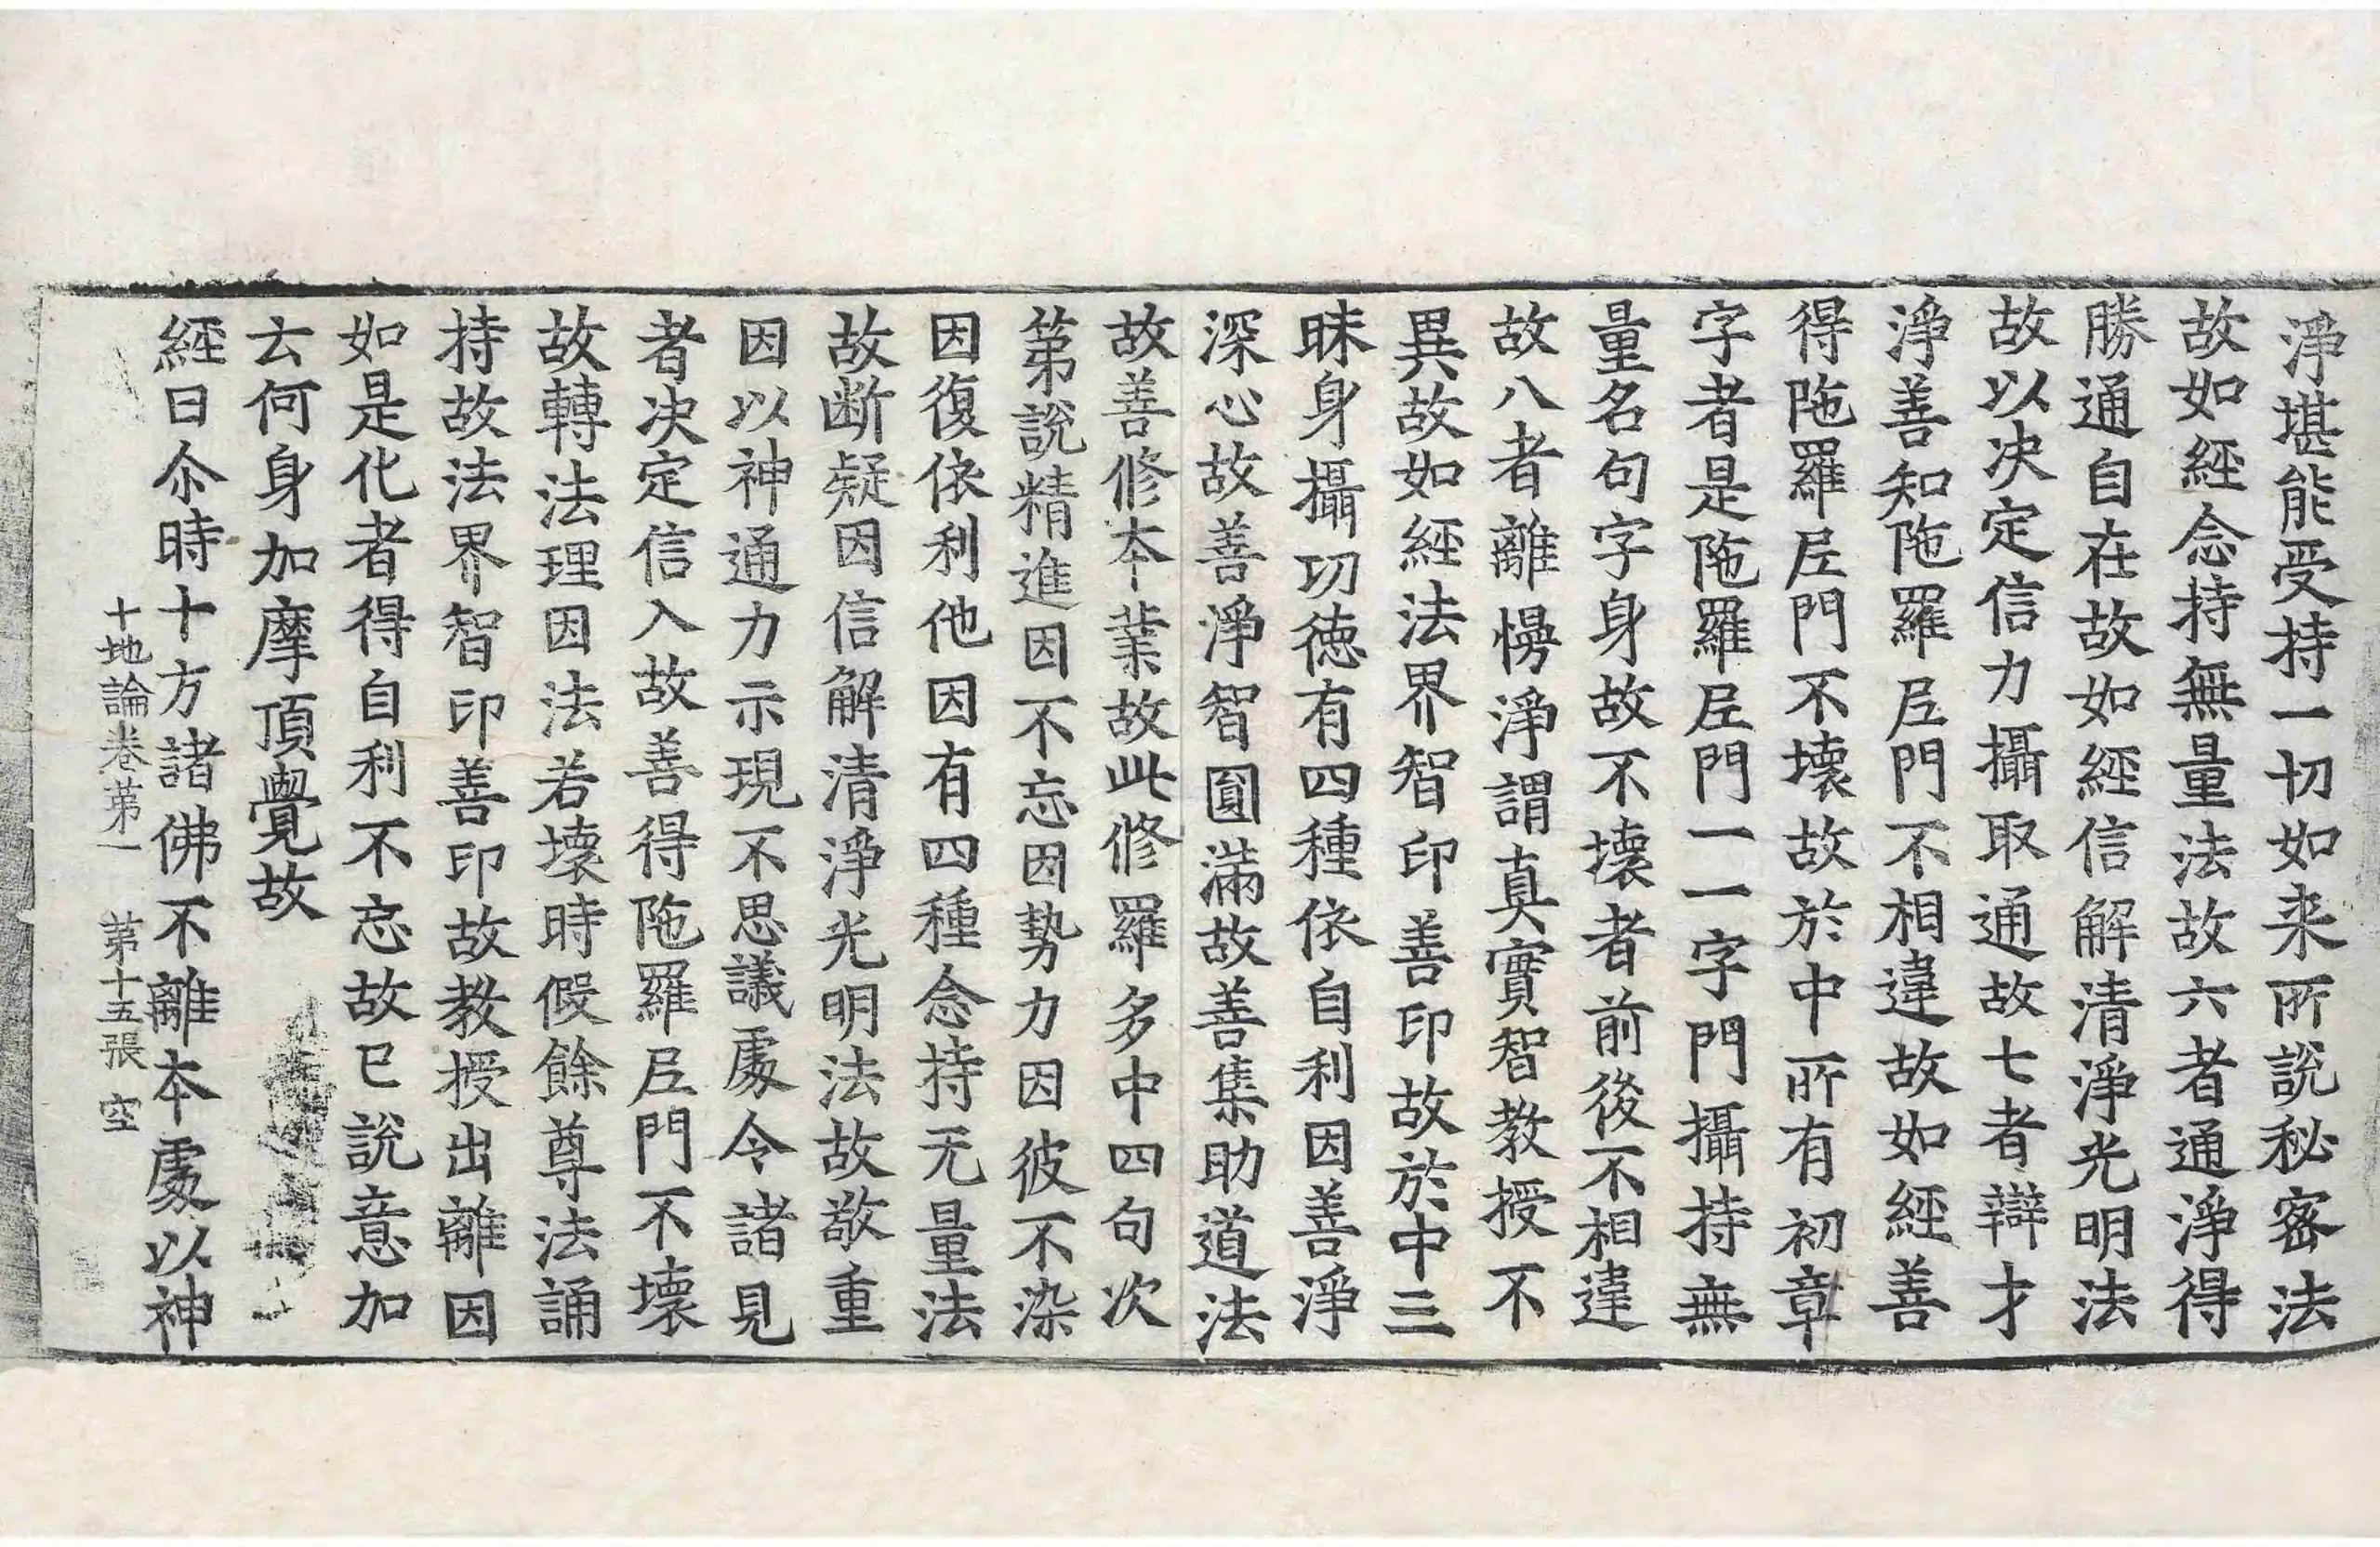 淨堪能受持一切如来所說秘密法
故如經念持無量法故六者通淨得
勝通自在故如經信解清淨光明法
故以决定信力攝取通故七者辯才
淨善知陁羅𡰱門不相違故如經善
得陁羅𡰱門不壞故於中所有初章
字者是陁羅𡰱門一一字門攝持無
量名句字身故不壞者前後不相違
故八者離慢淨謂真實智教授不
異故如經法界智印善印故於中三
昧身攝切徳有四種依自利因善淨
深心故善淨智圓滿故善集助道法
故善修本業故此修羅多中四句次
苐說精進因不忘因勢力因彼不染
因復依利他因有四種念持无量法
故断疑因信解清淨光明法故敬重
因以神通力示現不思議處令諸見
者决定信入故善得陁羅𡰱門不壞
故轉法理因法若壞時假餘尊法誦
持故法界智印善印故教授出離因
如是化者得自利不忘故已說意加
云何身加摩頂覺故
經曰尒時十方諸佛不離本處以神
十地論卷苐一　苐十五張　空